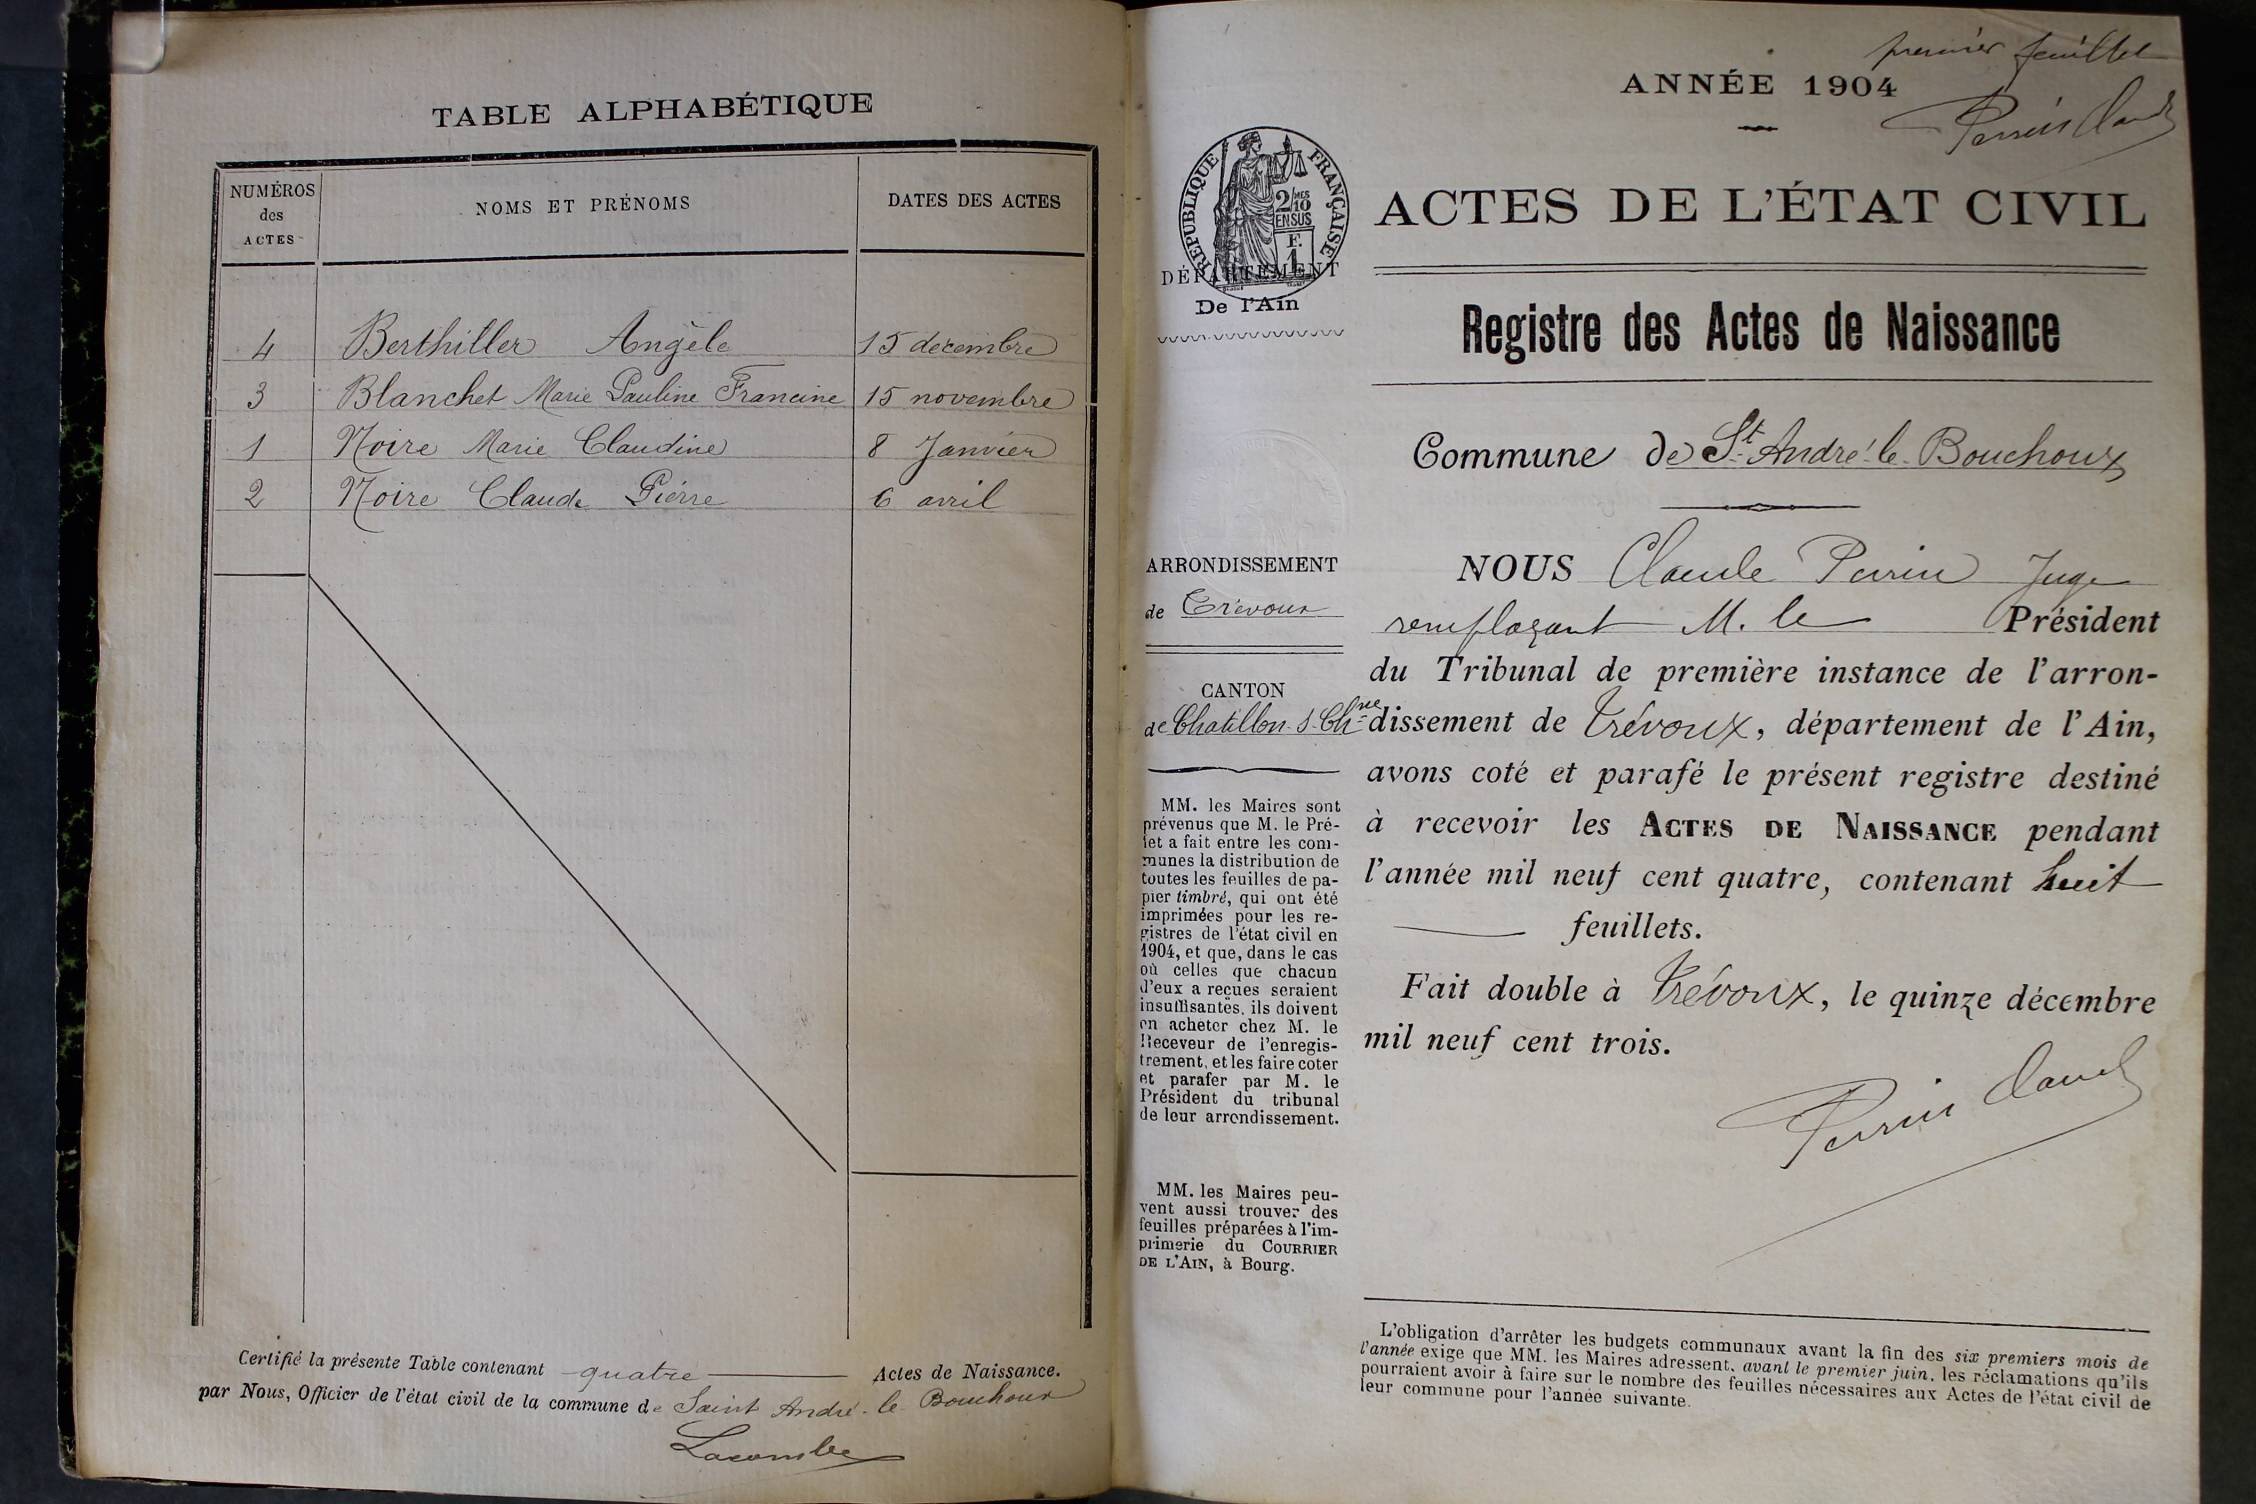 TABLE ALPHABÉTIQUE
NUMÉROS
des
ACTES
NOMS ET PRÉNOMS
DATES DES ACTES
4 Berthiller Angèle 15 decembre
3 Blanchet Marie Pauline Francine 15 novembre
1 Noire Marie Claudine 8 Janvier
2 Noire Claude Pierre 6 avril
Certifié la présente Table contenant quatre Actes de Naissance.
par Nous, Officier de l'état civil de la commune de Saint André-le-Bouchoux
Lacombe
premier feuillet
ANNÉE 1904
Perrin Claude
RÉPUBLIQUE FRANÇAISE
2/10 MES
EN SUS
F.
1
ACTES DE L'ÉTAT CIVIL
DÉPARTEMENT
De l'Ain
Registre des Actes de Naissance
Commune de St André-le-Bouchoux
ARRONDISSEMENT
de Trévoux
CANTON
de Chatillon-s-Chne
MM. les Maires sont
prévenus que M. le Pré-
fet a fait entre les com-
munes la distribution de
toutes les feuilles de pa-
pier timbré, qui ont été
imprimées pour les re-
gistres de l'état civil en
1904, et que, dans le cas
où celles que chacun
d'eux a reçues seraient
insuffisantes, ils doivent
en acheter chez M. le
Receveur de l'enregis-
trement, et les faire coter
et parafer par M. le
Président du tribunal
de leur arrondissement.
MM. les Maires peu-
vent aussi trouver des
feuilles préparées à l'im-
primerie du COURRIER
DE L'AIN, à Bourg.
NOUS Claude Perrin Juge
remplaçant M. le Président
du Tribunal de première instance de l'arron-
dissement de Trévoux, département de l'Ain,
avons coté et parafé le présent registre destiné
à recevoir les ACTES DE NAISSANCE pendant
l'année mil neuf cent quatre, contenant huit
feuillets.
Fait double à Trévoux, le quinze décembre
mil neuf cent trois.
Perrin Claude
L'obligation d'arrêter les budgets communaux avant la fin des six premiers mois de
l'année exige que MM. les Maires adressent, avant le premier juin, les réclamations qu'ils
pourraient avoir à faire sur le nombre des feuilles nécessaires aux Actes de l'état civil de
leur commune pour l'année suivante.